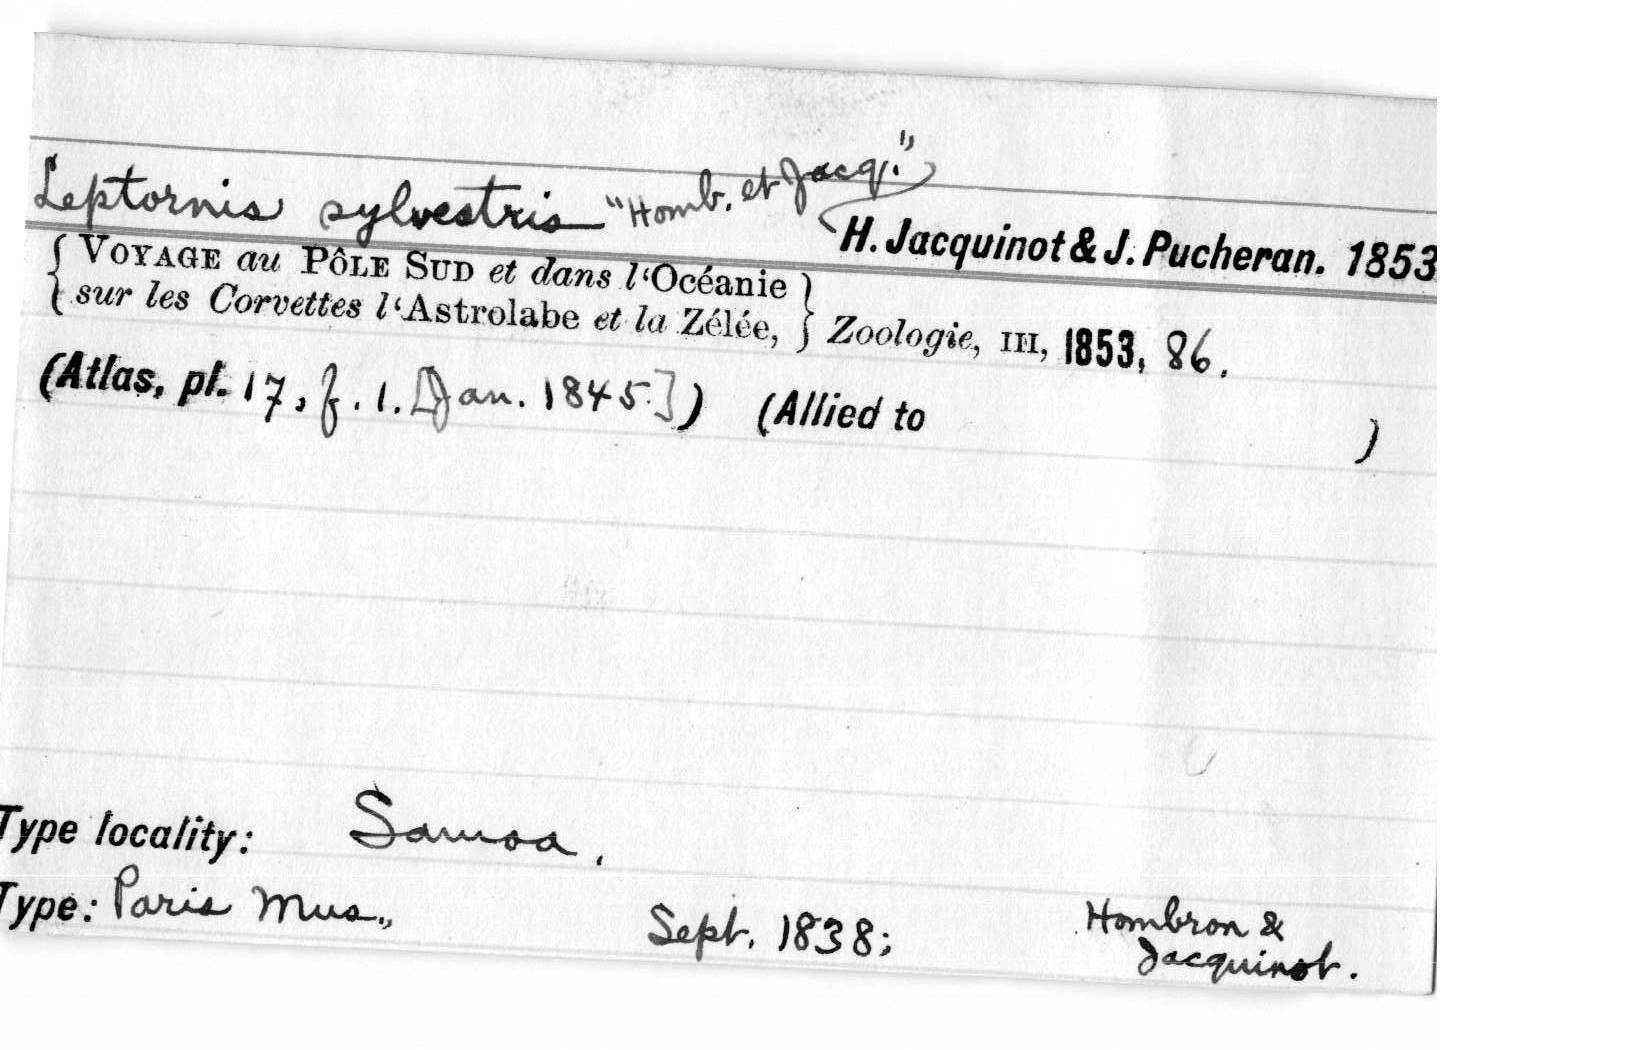 Leptornis sylvestris "Homb. et Jacq."
H. Jacquinot & J. Pucheran. 1853
{ VOYAGE au PÔLE SUD et dans l'Océanie }
{ sur les Corvettes l'Astrolabe et la Zélée, } Zoologie, III, 1853, 86.
(Atlas, pl. 17, f. 1. [Jan. 1845.]) (Allied to )
Type locality: Samoa.
Type: Paris Mus., Sept. 1838; Hombron &
Jacquinot.